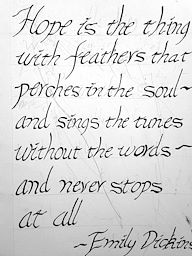 Hope is the thing
with feathers that
perches in the soul~
and sings the tunes
without the words ~
and never stops
at all
~Emily Dickins